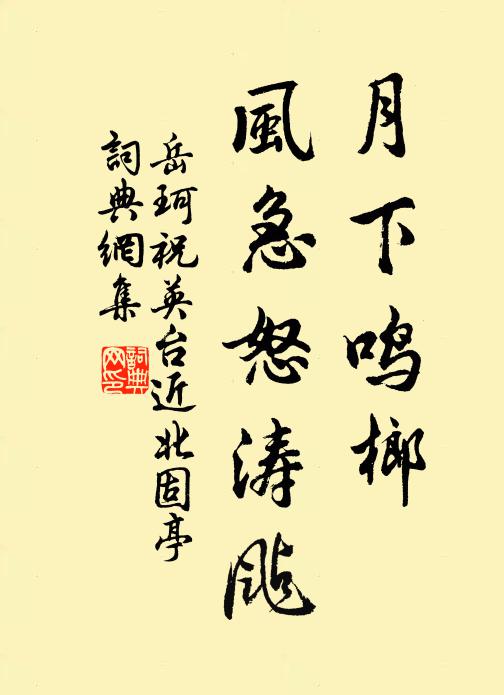 月下鸣榔
風急怒涛颭
岳珂祝英台近北固亭
詞典網集
詞典网印